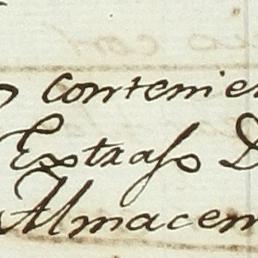 contenie
Extraso D
Almacen